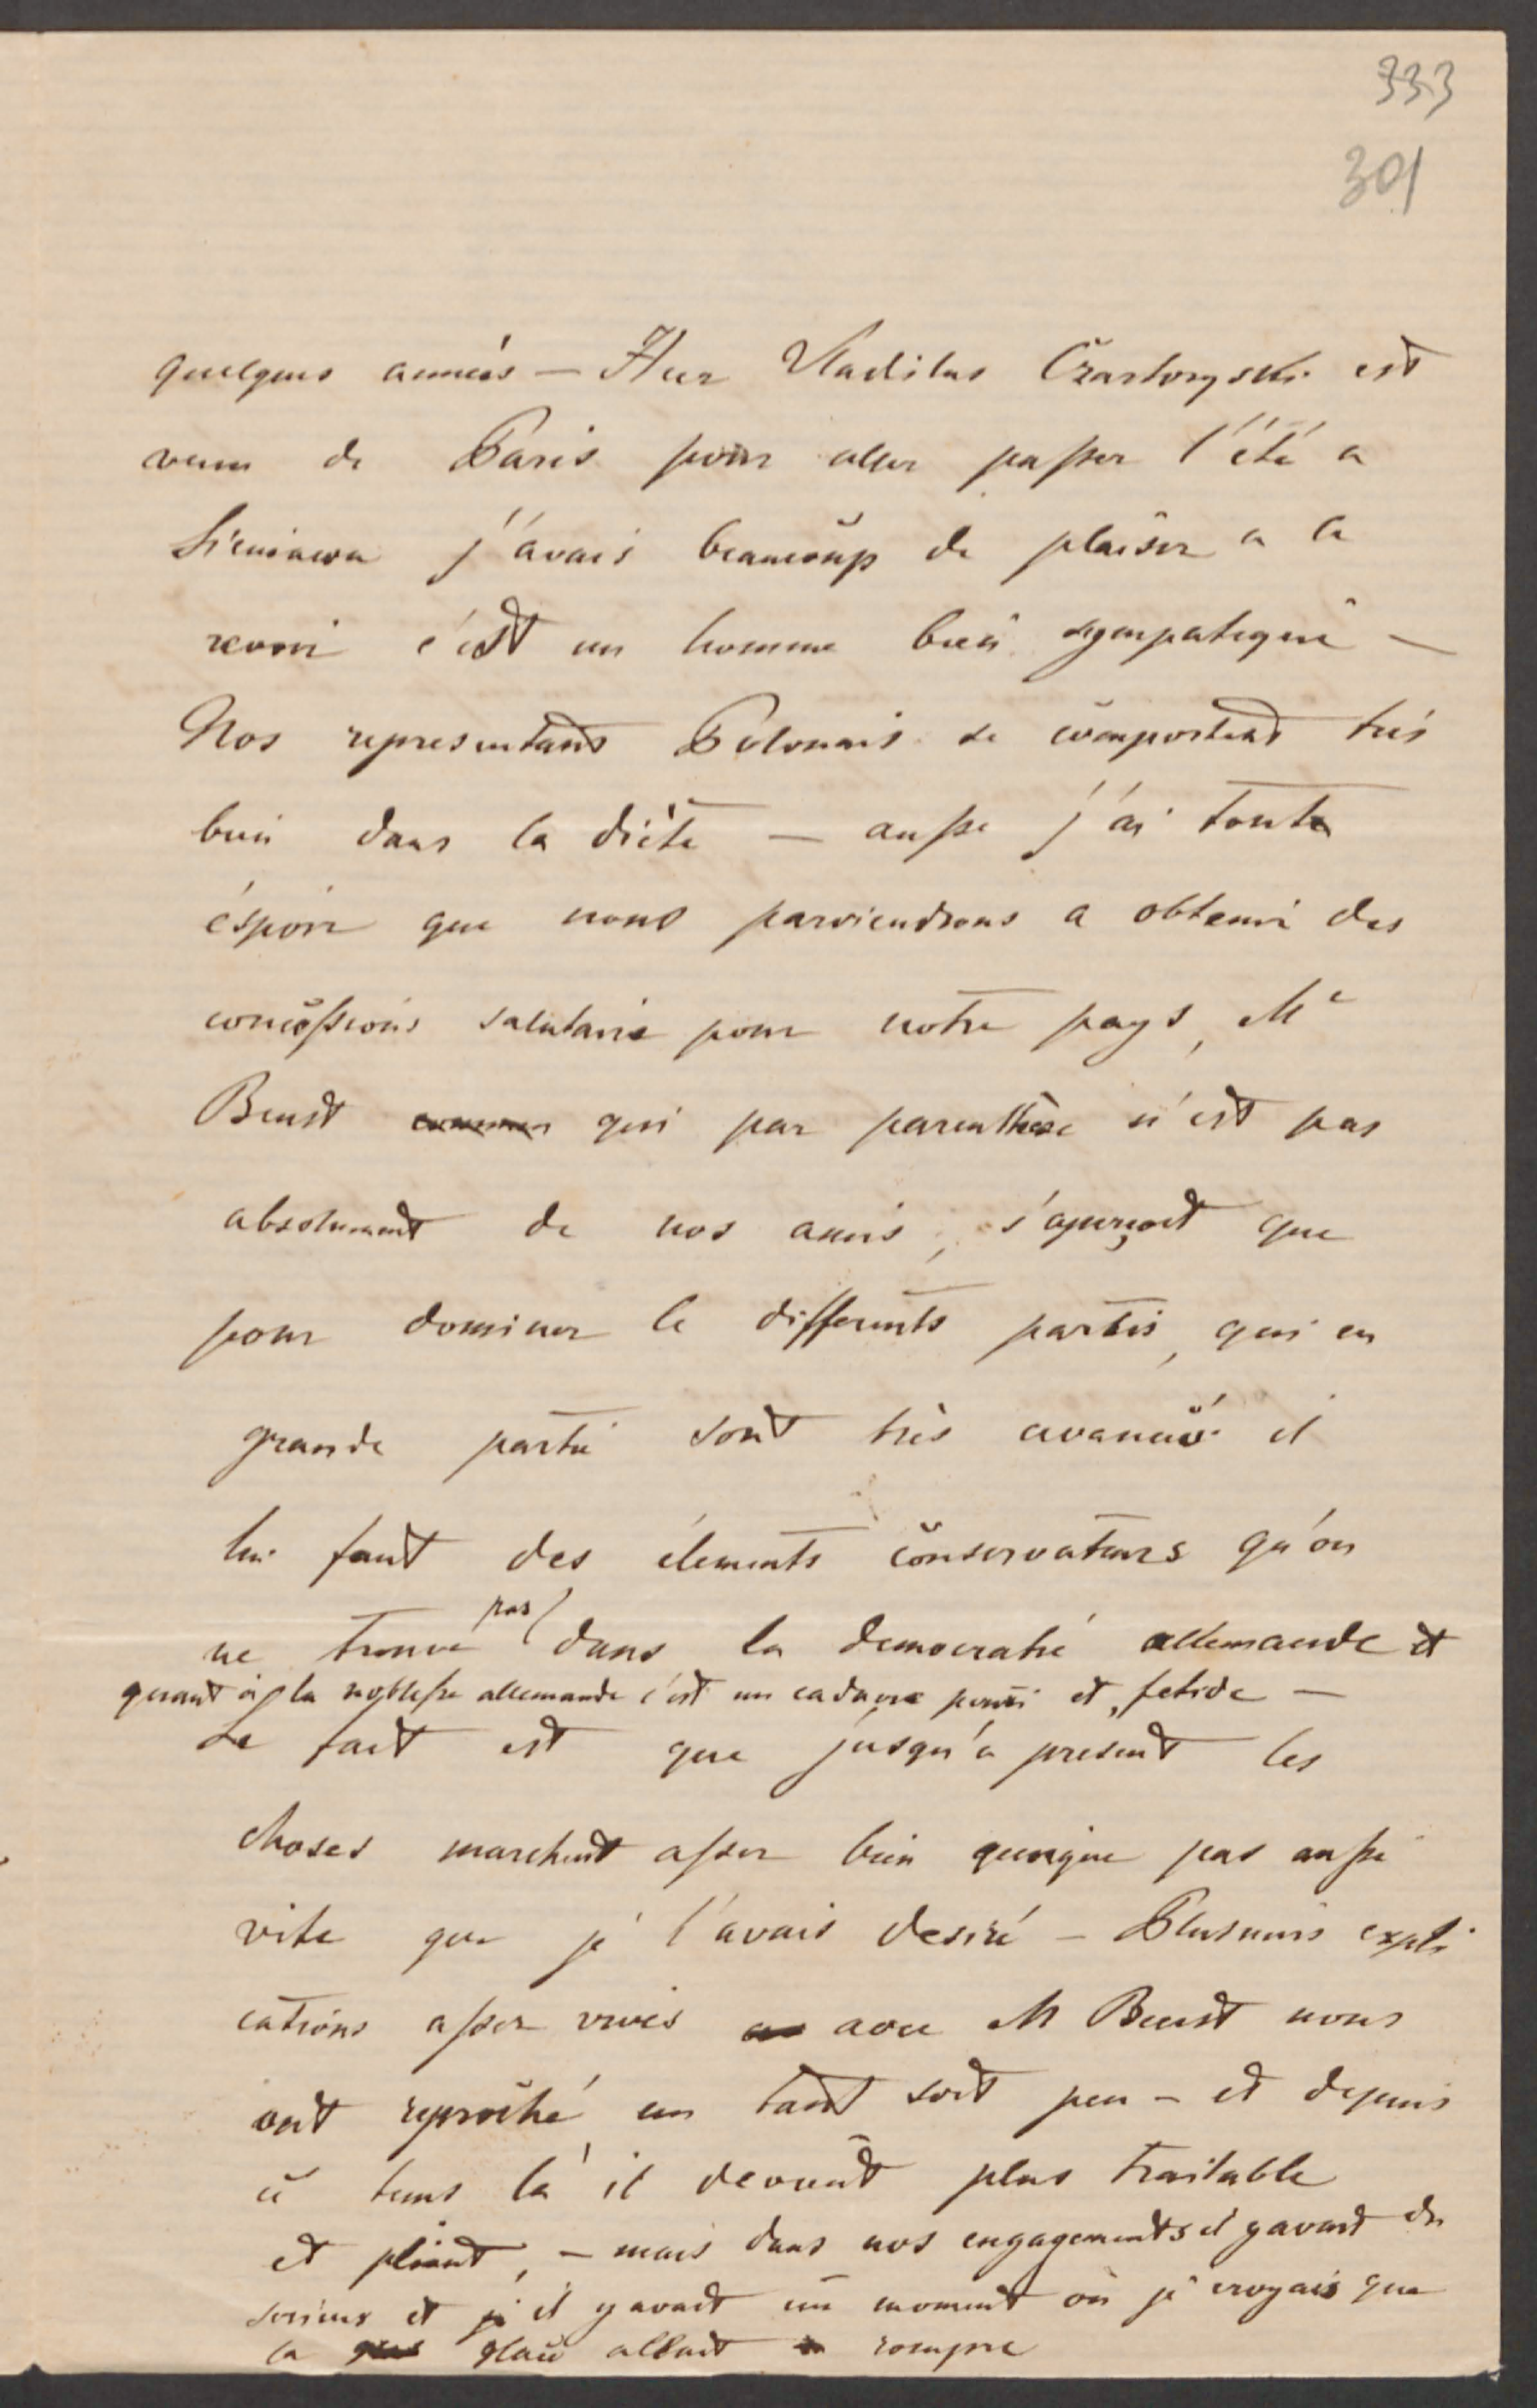 333
301
quelques annéés — Hier Vladilas Czartoryski est
venu de Paris pour aller passer l'été a
Sieniawa j'avais beaucoup de plaisir a le
revoir c'est un homme bien sympatique —
Nos representants Polonais se comportent trés
bien dans la diéte — aussi j'ai toute
éspoir que nous parviendrons a obtenir des
concéssions salutaire pour notre pays, Mr
Beust qui par parenthèse n'est pas
absolument de nos amis, s'aperçoit que
pour dominer le differents partis, qui en
grande partie sont très avancés il
lui faut des élements conservateurs qu'on
ne trouve pas dans la democratie allemande et
quant à la noblesse allemande c'est un cadavre pourri et fetide —
Le fait est que jusqu'a present les
choses marchent asser bien quoique pas aussi
vite que je l'avais desiré — Plusieurs expli
cations asser vives avec M Beust nous
ont reproché un tant soit peu — et depuis
ce tems là il devient plus traitable
et pliant, — mais dans nos engagements il y avait du
serieux et il y avait un moment où je croyais que
la glace allait rompre